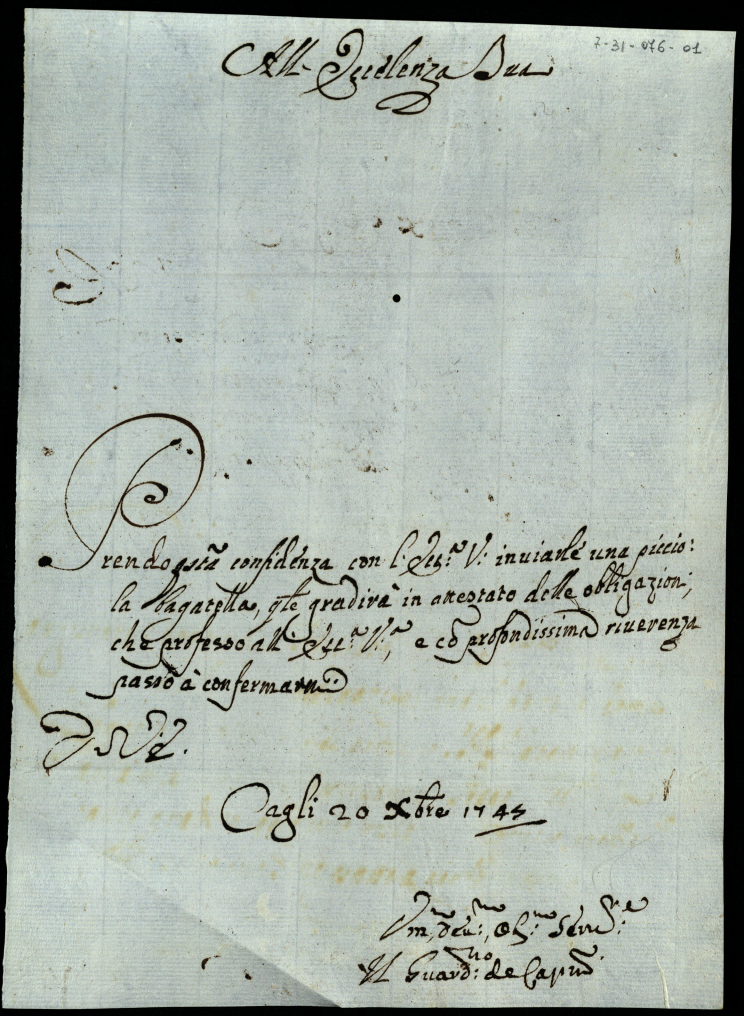 7-31-076-01
All'Eccelenza Sua
Prendo q.sta confidenza con l: Ecc.a V: inviarle una piccio:
la bagatella, q.le gradirà in attestato delle obligazioni,
che professo all: Ecc.a V.a, e cō profondissima riverenza
passo à confermarmi
D. V. E.
Cagli 20 Xbre 1745
Um.mo, dev.mo, Obl.mo Serv.re
Il Guard.no de Capni